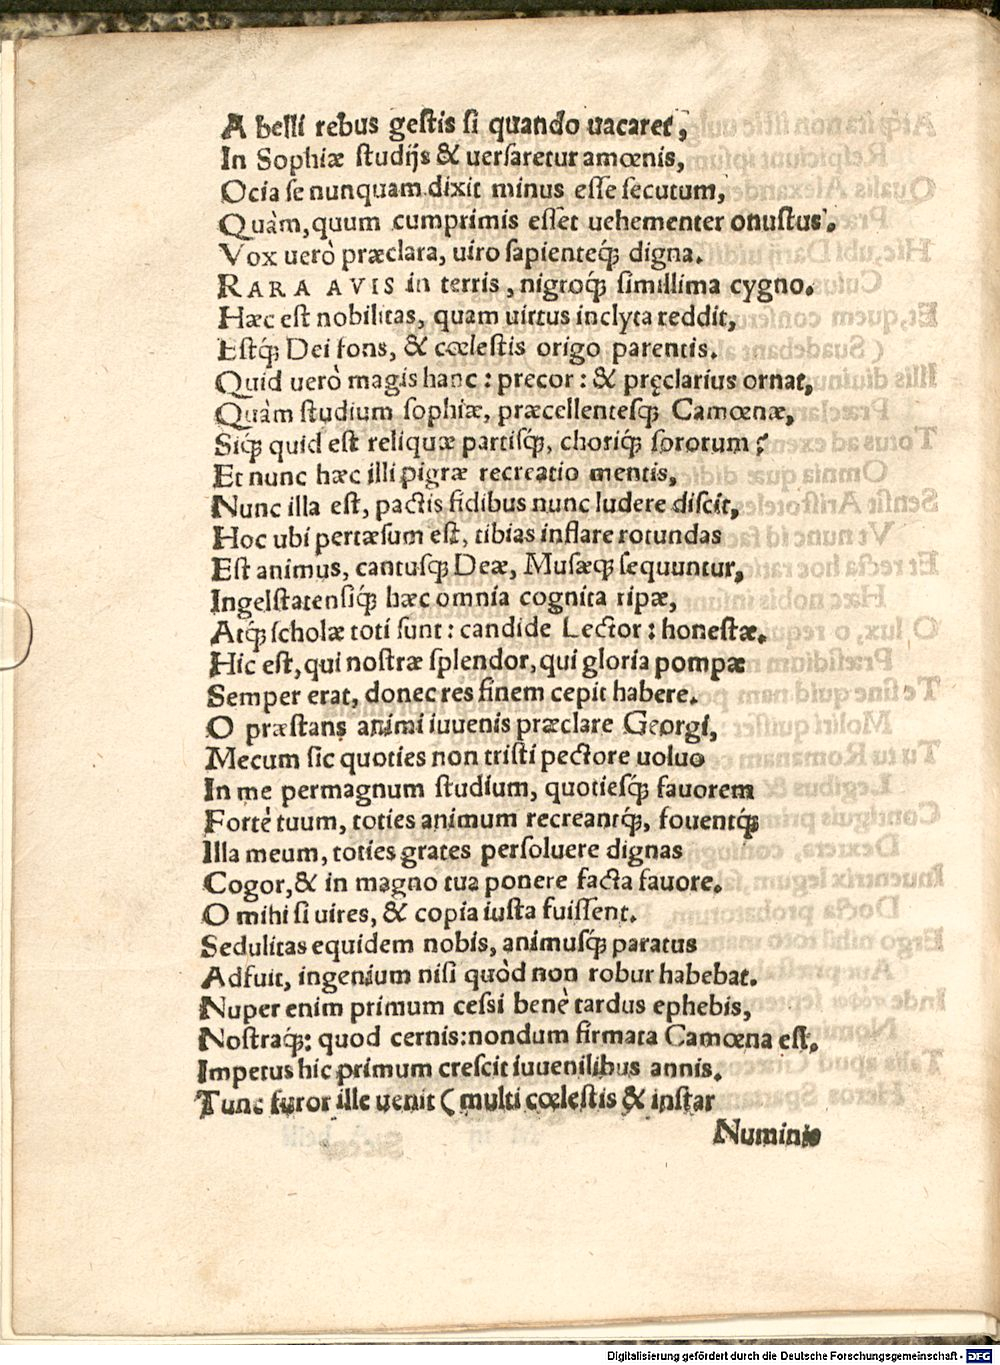 A belli rebus gestis si quando uacaret,
In Sophiæ studijs & uersaretur amœnis,
Ocia se nunquam dixit minus esse secutum,
Quàm, quum cumprimis esset uehementer onustus.
Vox uerò præclara, uiro sapienteq́; digna.
RARA AVIS in terris, nigroq́; simillima cygno.
Hæc est nobilitas, quam uirtus inclyta reddit,
Estq́; Dei fons, & cœlestis origo parentis.
Quid uerò magis hanc: precor: & pręclarius ornat,
Quàm studium sophiæ, præcellentesq́; Camœnæ,
Siq́; quid est reliquæ partisq́;, choriq́; sororum?
Et nunc hæc illi pigræ recreatio mentis,
Nunc illa est, pactis fidibus nunc ludere discit,
Hoc ubi pertæsum est, tibias inflare rotundas
Est animus, cantusq́; Deæ, Musæq́; sequuntur,
Ingelstatensiq́; hæc omnia cognita ripæ,
Atq́; scholæ toti sunt: candide Lector: honestæ.
Hic est, qui nostræ splendor, qui gloria pompæ
Semper erat, donec res finem cepit habere.
O præstans animi iuuenis præclare Georgi,
Mecum sic quoties non tristi pectore uoluo
In me permagnum studium, quotiesq́; fauorem
Fortè tuum, toties animum recreantq́;, fouentq́;
Illa meum, toties grates persoluere dignas
Cogor, & in magno tua ponere facta fauore.
O mihi si uires, & copia iusta fuissent.
Sedulitas equidem nobis, animusq́; paratus
Adfuit, ingenium nisi quòd non robur habebat.
Nuper enim primum cessi benè tardus ephebis,
Nostraq́;: quod cernis: nondum firmata Camœna est.
Impetus hic primum crescit iuuenilibus annis.
Tunc furor ille uenit (multi cœlestis & instar
Numinis
Digitalisierung gefördert durch die Deutsche Forschungsgemeinschaft - DFG